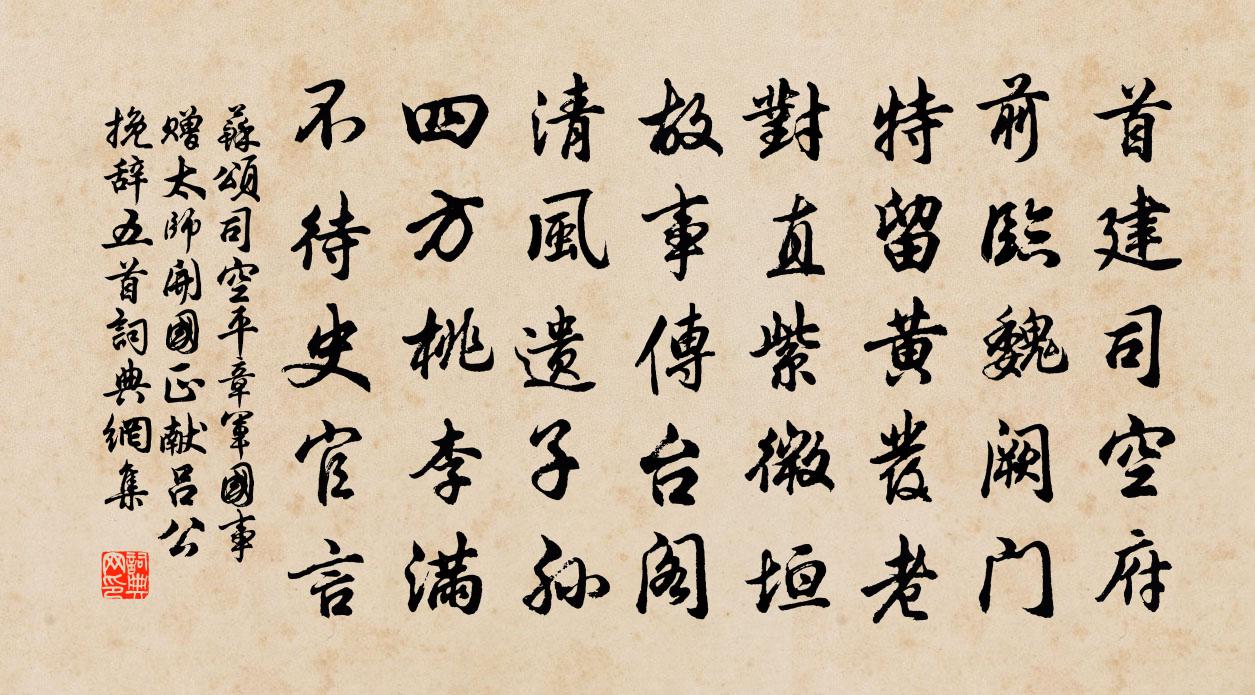 首建司空府
前臨魏阙门
特留黄發老
對直紫微垣
故事傳台阁
清風遗子孙
四方桃李满
不待史官言
蘇頌司空平章軍國事
赠太師開國正献呂公
挽辞五首詞典網集
詞典
网印